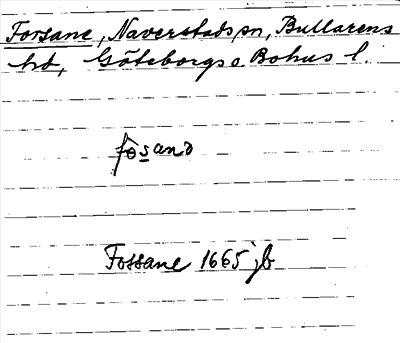 Forsane, Naverstads sn, Bullarens
hd, Göteborgs o Bohus l.
fò̀sanə
Fossane 1665 jb